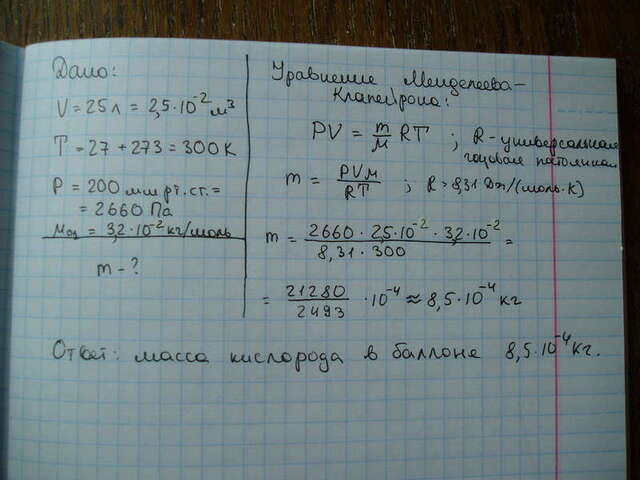 Дано:
V = 25 л = 2,5·10⁻² м³
T = 27 + 273 = 300 К
P = 200 мм рт. ст. =
= 2660 Па
μO₂ = 3,2·10⁻² кг/моль
m - ?
Уравнение Менделеева-
Клапейрона:
PV = m/μ RT ; R - универсальная
газовая постоянная
m = PVμ/RT ; R = 8,31 Дж/(моль·К)
m = 2660 · 2,5·10⁻² · 3,2·10⁻² / 8,31 · 300 =
= 21280/2493 · 10⁻⁴ ≈ 8,5·10⁻⁴ кг
Ответ: масса кислорода в баллоне 8,5·10⁻⁴ кг.